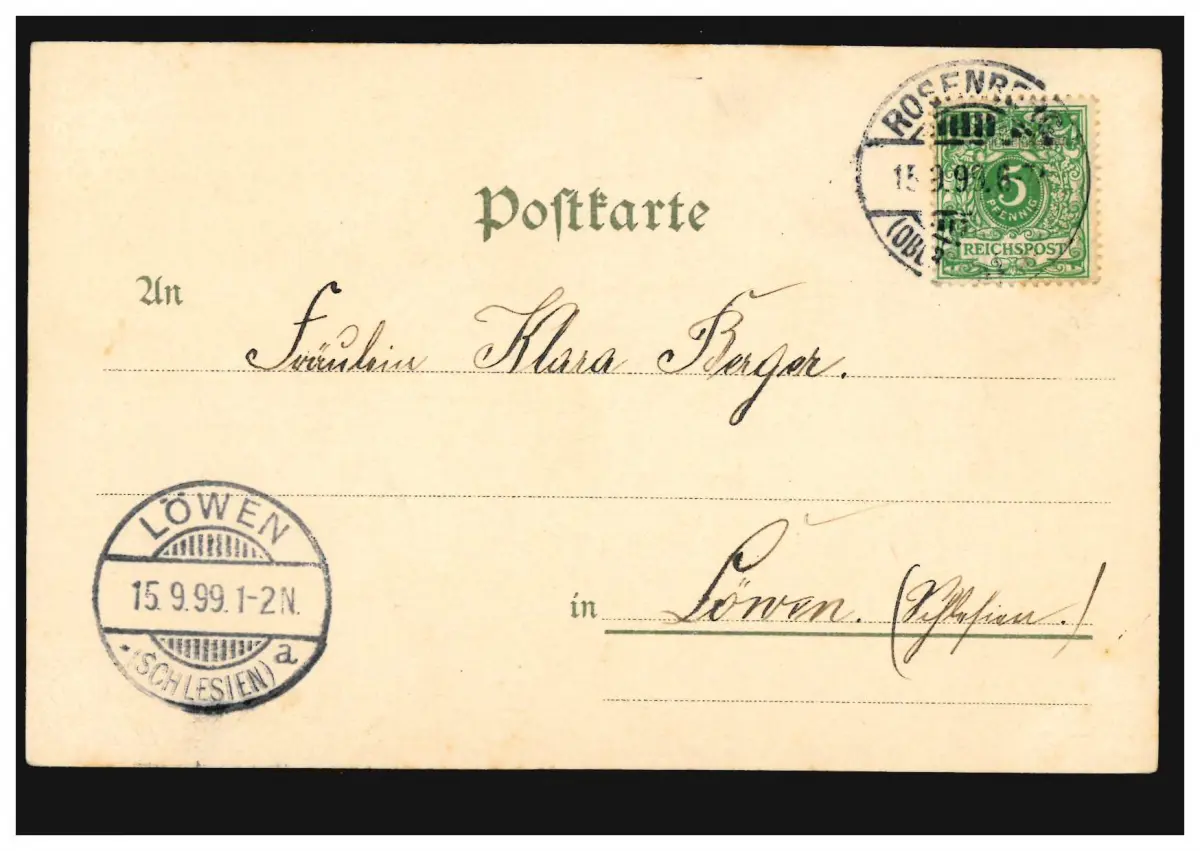 ROSENBERG
15.9.99.
5
PFENNIG
REICHSPOST
Postkarte
An
Fräulein Klara Berger.
LÖWEN
15.9.99.1-2N.
(SCHLESIEN) a
in Löwen. (Schlesien.)